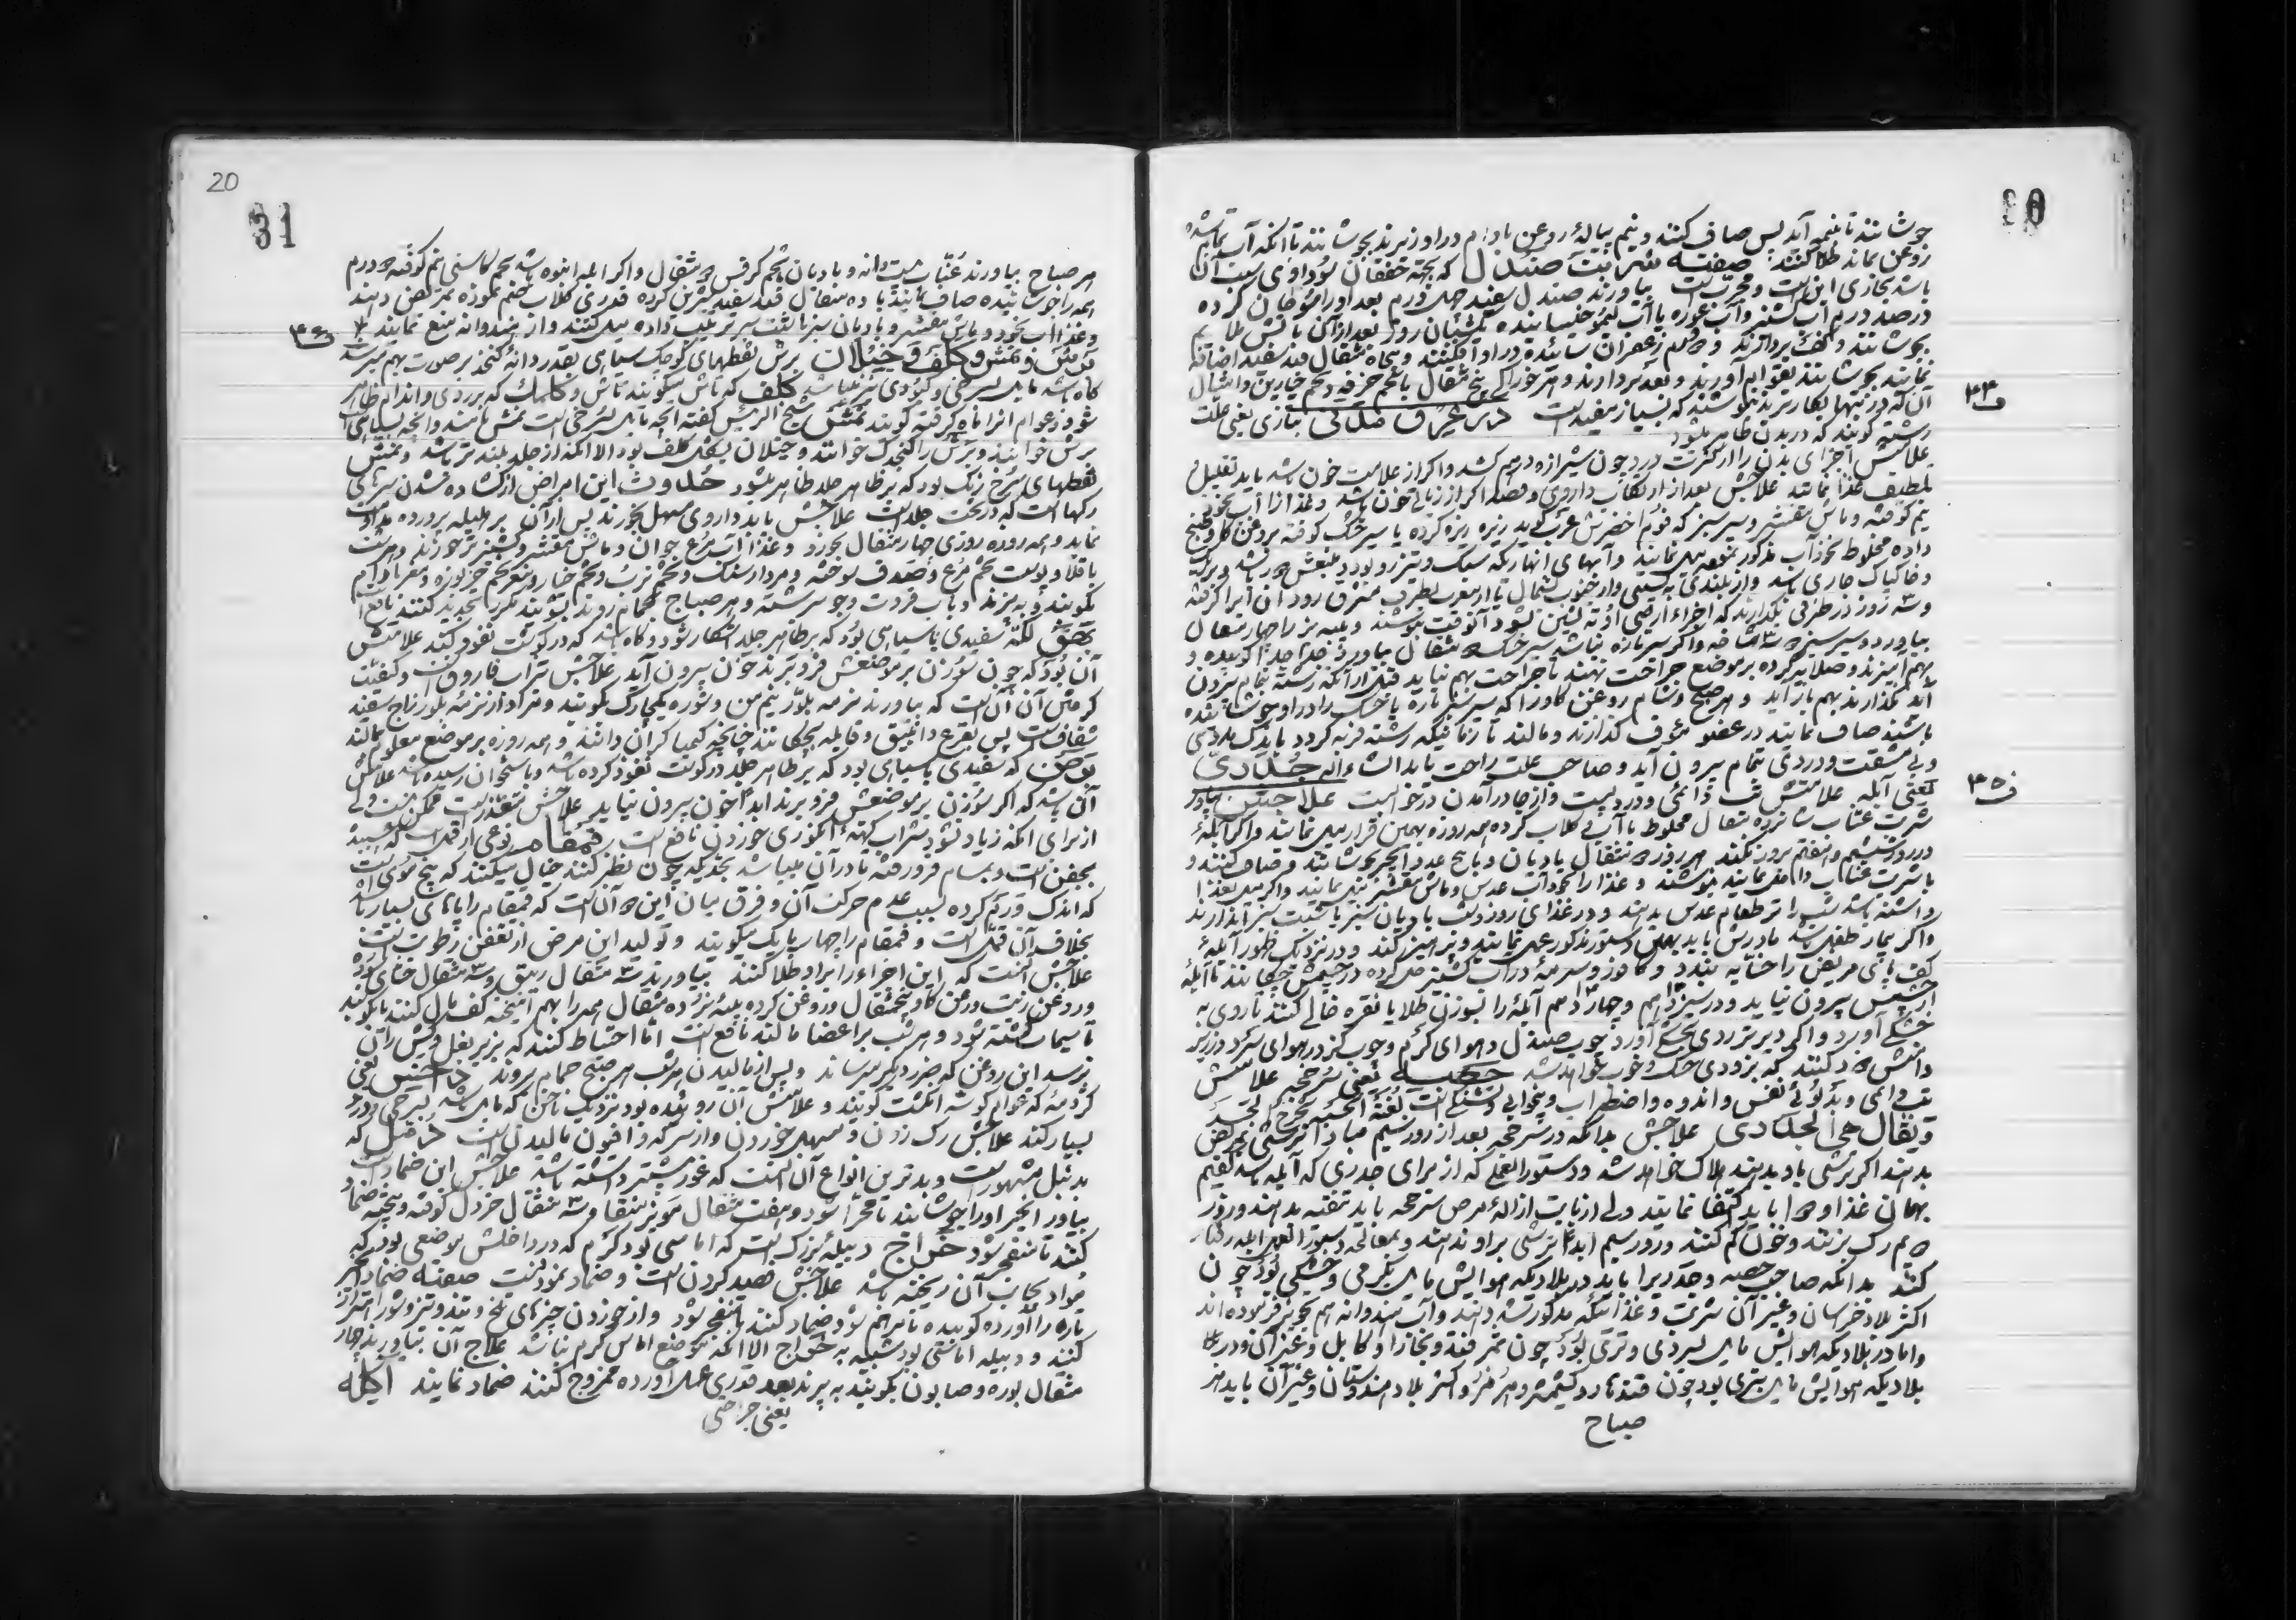 جوشانند تا بنیمه آید پس صاف کنند و نیم پیاله روغن بادام در او ریزند بجوشانند تا آنکه آب تمام شده
روغن بماند طلا کنند صفته شربت صندل که بجهته خفقان سوداوی
باشد مجازی این است و مجرب است بیاورند صندل سفید چهل درم بعد او را سوهان کرده
در صد درم آب کشنیز و آب غوره یا آب لیمو خیسانیده یکشبان روز بعد از آن باتش ملایم
بجوشانند و کف بردارند و درم زعفران سائیده در او افکنند و پنجاه مثقال قند سفید اضافه
نمایند بجوشانند بقوام آورند و بعده بردارند و هر خوراک پنج مثقال با تخم خرفه و تخم خیارین و امثال
آن که در تنها بکار برند بنوشند که بسیار مفید است در عرق مدنی بتازی یعنی علت
رشته گویند که در بدن ظاهر بشود
علامتش اجزای بدن را از کثرت درد چون شیرازه درهم کشد و اگر از علامت خون باشد باید تقلیل
تلطیف غذا نمایند علاجش بعد از ارتکاب داروی و فصد اگر از زیادتی خون باشد و غذا از آب نخود
نیم کوفته و ماش مقشر و سیر سبز که فوم اخضرش عرب گوید ریزه ریزه کرده یا سیر خشک کوفته بروغن گاو و طبخ
داده مخلوط بخود آب مذکور نموده میل نمایند و آبهای انهاریکه سبک و تیزرو بود و منبعش دور باشد و بر ریگ
و خاک پاک جاری باشد و از بلندی به پستی و از جنوب بشمال یا از مغرب بطرف مشرق رود آن آب را گرفته
و سه روز در ظرفی بگذارند که اجزاء ارضی او ته نشین شود آنوقت بنوشند و پنبه بز را چهار مثقال
بیاورد و سیر سبز
بهم آمیزند و صلایه کرده بر موضع جراحت نهند تا جراحت بهم نیاید قبل از آنکه رشته تمام بیرون
آید نگذارند بهم باز آید و هر صبح و شام روغن گاو را که سیر سبز تازه یا خشک را در او جوشانیده
باشند صاف نمایند در عضو مؤف گذارند و مالند تا زمانیکه رشته فربه گردد باندک مدتی
و بی مشقت و دردی تمام بیرون آید و صاحب علت راحت یابد انشاء الله جدری
یعنی آبله علامتش تب دائمی و درد پشت و از جا درآمدن در خواب است علاجش بیاورند
شربت عناب شانزده مثقال مخلوط با آب و گلاب کرده همه روزه بهمین قرار میل نمایند و اگر آبله
در روز ششم و هفتم بروز نکند هر روز مثقال بادیان و با پنج عدد انجیر بجوشانند و صاف کنند و
با شربت عناب داخل نمایند بنوشند و غذا را نخود آب عدس و ماش مقشر میل نمایند و اگر میل بغذا
داشته باشد شب را تر طعام عدس بدهند و در غذای روز و شب بادیان سبز یا شبت سبز اندازند
واگر بیمار طفل باشد مادرش باید بهمین دستور مذکور عمل نمایند و پرهیز کند و در نزدیک ظهور آبلهٔ
کف پای مریض را حنا به بندد و کافور و سرمه در آب کشنیز حل کرده در چشمش چکانند تا آبله
از چشمش بیرون نیاید و در سیزدهم و چهاردهم آبله را بسوزن طلا یا نقره خالی کنند تا روی به
خشکی آورد و اگر دیر تر روی بخشکی آورد چوب صندل و هوای گرم و چوب گز در هوای سرد در زیر
دامنش دود کنند که بزودی خشک و خوب خواهد شد حصبه یعنی سرخجه علامتش
تب دائمی و بد بوئی نفس و اندوه و اضطراب و بیخوابی و تشنگی است
و یقال هی الجدری علاجش بدانکه در سرخجه بعد از روز ششم مبادا ترشی بمریض
بدهند اگر ترشی یا بدیند هلاک خواهد شد و دستور العمل که از برای جدری که آبله باشد گفتیم
بهمان غذا و دوا باید اکتفا نمایند ولی از بابت ازالهٔ مرض سرخجه باید بنفشه بدهند و روز
دوم رک بزنند و خون کم کنند و روز سیم ابدا ترشی براو ندهند و بمعالجه دستور العمل آبله رفتار
کنند بدانکه صاحب حصبه و جدری را باید در بلادیکه هوایش مایل بگرمی و خشکی بود چون
اکثر بلاد خراسان و غیر آن شربت و غذائیکه مذکور شد دهند و آب هندوانه هم تجویز فرموده اند
و اما در بلادیکه هوایش مایل بسردی و تری بود چون سمرقند و بخارا و کابل و غیر آن و در
بلادیکه هوایش مایل بتری بود چون قندهار و کشمیر و هرمز و اکثر بلاد هندوستان و غیر آن باید هر
صباح
۳۴
۳۵
20
31
هر صباح بیاورند عناب بیست دانه و بادیان و تخم کرفس مثقال و اگر آبله انبوه باشد تخم کاسنی نیم کوفته درم
همه را جوشانیده صاف نمایند با ده مثقال قند سفید شیرین کرده قدری گلاب ضم نموده بمریض دهند
و غذا آب نخود و ماش مقشر و بادیان سبز یا شبت سبز ترتیب داده میل کنند و از هندوانه منع نمایند
برش و نمش و کلف و خیلان برش نقطهای کوچک سیاهی بقدر دانهٔ کنجد بر صورت بهم میرسد
گاه باشد مایل بسرخی و کبودی نیز میباشد کلف که تاش میگویند
شود و عوام انرا ماه گرفته گویند نمش شیخ الرئیس گفته آنچه مایل بسرخی است نمش نامند و آنچه بسیاهی است
برش خوانند و برش را کنجدک خوانند و خیلان بشکل کلف بود الا آنکه از جلد بلند تر باشد و نمش
نقطهای سرخ رنگ بود که بر ظاهر جلد ظاهر میشود حدوث این امراض از گشاده شدن سرهای
رگهاست که در تحت جلد است علاجش باید داروی مسهل بخورند پس از آن بر هلیله پرورده مداومت
نماید و همه روزه روزی چهار مثقال بخورد و غذا آب مرغ جوان و ماش مقشر و کشنیز تر خورند
باقلا و پوست تخم مرغ و صدف سوخته و مردار سنگ و تخم ترب و تخم خیار و مغز تخم خربوزه و مغز بادام
بکوبند و به پزند
بهق لکهٔ سفیدی یا سیاهی بود که بر ظاهر جلد آشکار شود و گاه باشد که در گوشت نفوذ کند علامتش
آن بود که چون سوزن بر موضعش فرو برند خون بیرون آید علاجش تراب فاروق است و کیفیت
گرفتن آن آن است که بیاورند نرمه بلور نیم من و شوره یکچارک بکوبند و مراد از نرمه بلور زاج سفید
شفاف است پس بقرع و انبیق و قابله بچکانند چنانچه کیمیا گران دانند و همه روزه بر موضع معلول بمالند
برص که سفیدی یا سیاهی بود که بر ظاهر جلد در گوشت نفوذ کرده باشد و باستخوان رسیده باشد علامتش
آن باشد که اگر سوزن بر موضعش فرو برند ابدا خون بیرون نیاید علاجش متعذر است ممکن نیست ولی
از برای آنکه زیاد نشود شراب کهنه انگوری خوردن نافع است قمقام نوعی از قمل است که چسبیده
بجفن است و بمسام فرو رفته تا در آن میباشد بحدیکه چون نظر کنند خیال میکنند که بیخ موی است
که اندک ورم کرده بسبب عدم حرکت آن و فرق میان این دو آن است که قمقام را پاهای بسیار باشد
بخلاف آن قمل است و قمقام را چهار پا یک میگویند و تولید این مرض از تعفن رطوبت است
علاجش آنست که این اجزاء را براو طلا کنند بیاورند سه مثقال زیبق و سه مثقال حنای سوده
و روغن زیت و روغن گاو پنجمثقال و روغن کرده پیه بز ده مثقال همه را بهم آمیخته کف مال کنند یا بکوبند
تا سیماب کشته شود و هر شب بر اعضا مالند نافع است اما احتیاط کنند که بزیر بغل و کش ران
نرسد این روغن که ضرر دیگر میرساند و پس از مالیدن هر شب هر صبح حمام بروند داحس یعنی
کژدمه که عوام گوشه انگشت گویند و علامتش آن روئیده بود نزدیک ناخن که مایل باشد بسرخی و درد
بسیار کند علاجش رک زدن و مسهل خوردن و از سرکه و افیون مالیدن است دمل که
بدنبل مشهور است و بدترین انواع آن آنست که غور بیشتر داشته باشد علاجش این ضماد است
بیاور انجیر او را جوشانند تا مهرا شود و هفت مثقال مویز منقا و سه مثقال خردل کوفته و بیخته ضماد
کنند تا منفجر شود خراج دبیلهٔ بزرک است که اماسی بود گرم که در داخلش موضعی بود که
مواد بجانب آن ریخته باشد علاجش فصد کردن است و ضماد نمودنست صفته ضماد انجیر
تازه را آورده کوبیده تا مرهم شود ضماد کنند تا منفجر شود و از خوردن چیزهای تلخ و تند و تیز و شور احتراز
کنند و دبیله اماسی بود شبیه به خراج الا آنکه موضع اماس گرم نباشد علاج آن بیاورند چهار
مثقال بوره و صابون بکوبند به پزند بعد قدری عسل آورده ممزوج کنند ضماد نمایند آکله
یعنی جراحتی
۳۶